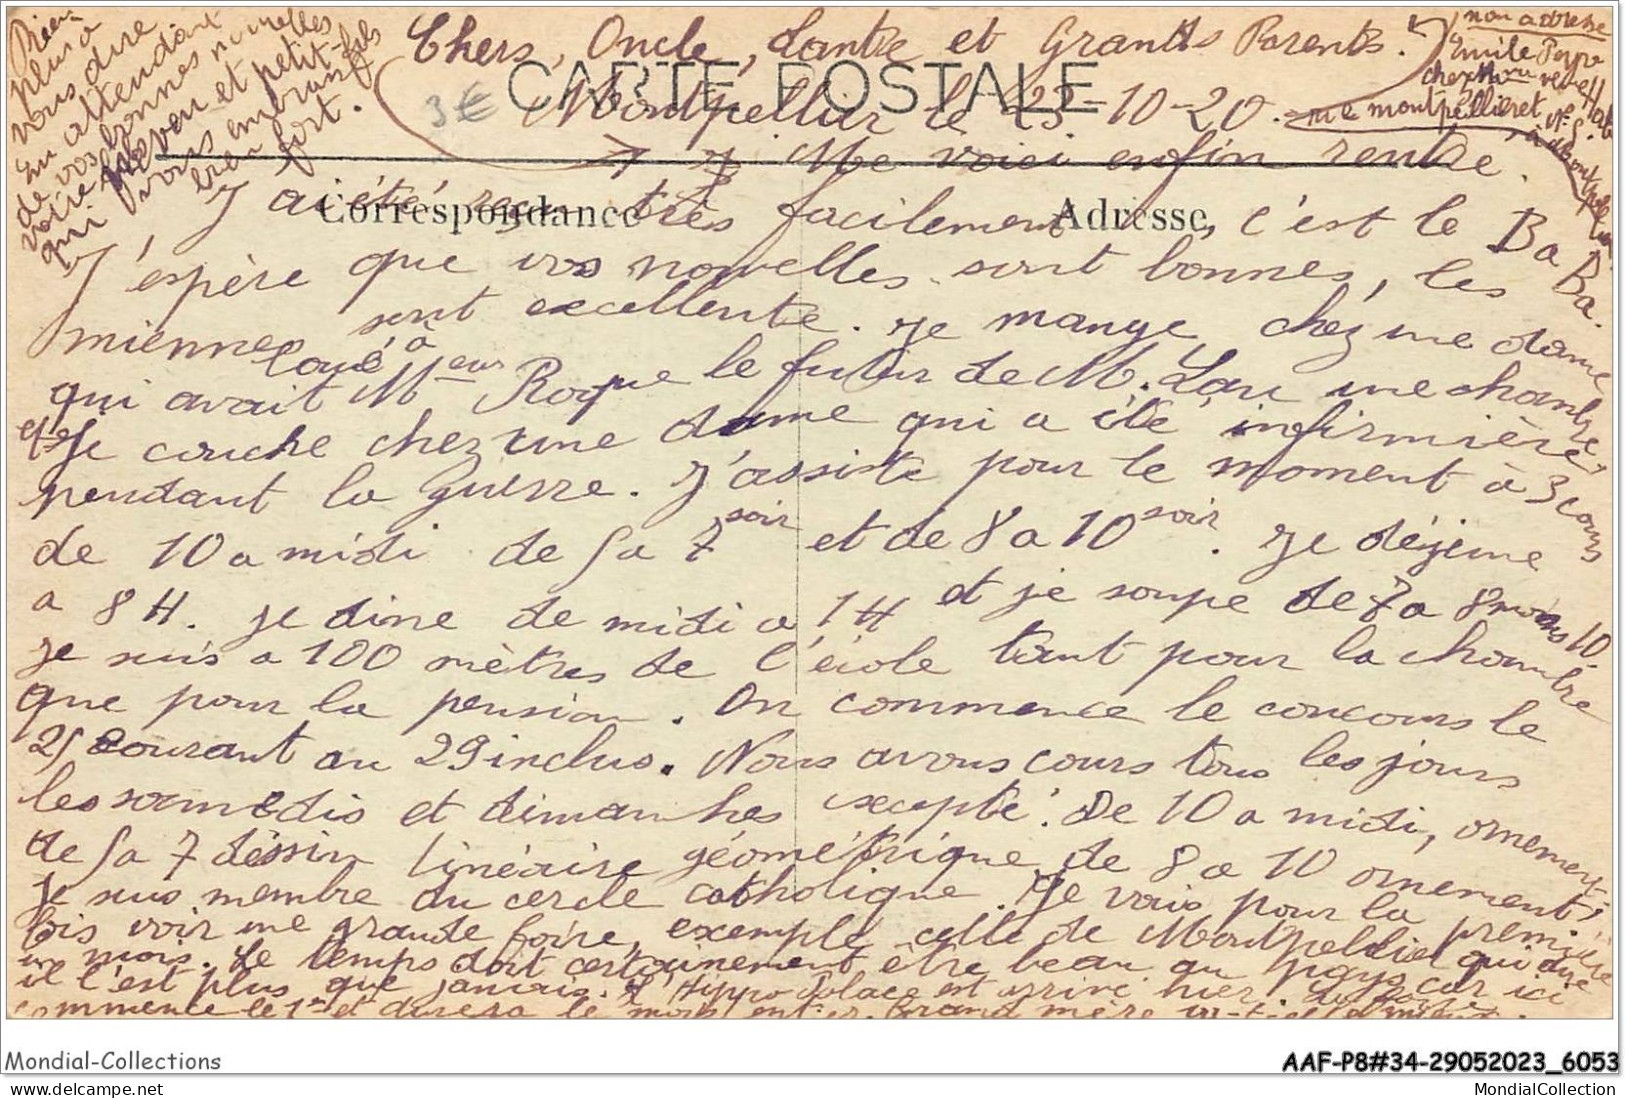 Chers, Oncle, Tante et Grands Parents.
CARTE POSTALE
3€
Montpellier le 23-10-20.
Me voici enfin rentré.
Correspondance
Adresse
J'ai été reçu très facilement, c'est le Ba Ba.
J'espère que vos nouvelles sont bonnes, les
miennes sont excellente. Je mange chez une dame
qui avait loué à Meur Roque le futur de M. Lau une chambre
et Je couche chez une dame qui a été infirmière
pendant la guerre. J'assiste pour le moment à 3 cours
de 10 a midi de 5 a 7 soir et de 8 a 10 soir. Je déjeune
a 8 H. je dine de midi a 1 H et je soupe de 7 a 8 moins 10.
je suis a 100 mètres de l'école tant pour la chambre
que pour la pension. On commence le concours le
25 courant au 29 inclus. Nous avons cours tous les jours
les samedis et dimanches excepté. De 10 a midi, ornement,
de 5 a 7 dessin linéaire géométrique de 8 a 10 ornement,
Je suis membre du cercle catholique. Je vais pour la première
fois voir une grande foire, exemple celle de Montpellier qui dure
un mois. Le temps doit certainement être beau au pays car ici
il l'est plus que jamais. L'Hippo Palace est arrivé hier. La foire
commence le 1er et durera le mois entier. Grand mère
Rien
plus a
vous dire
En attendant
de vos bonnes nouvelles
votre neveu et petit-fils
qui vous embrasse
bien fort.
mon adresse
Emile
chez Mme veuve
rue Montpellieret
N° 5.
à Montpellier
Mondial-Collections
AAF-P8#34-29052023_6053
www.delcampe.net
MondialCollection